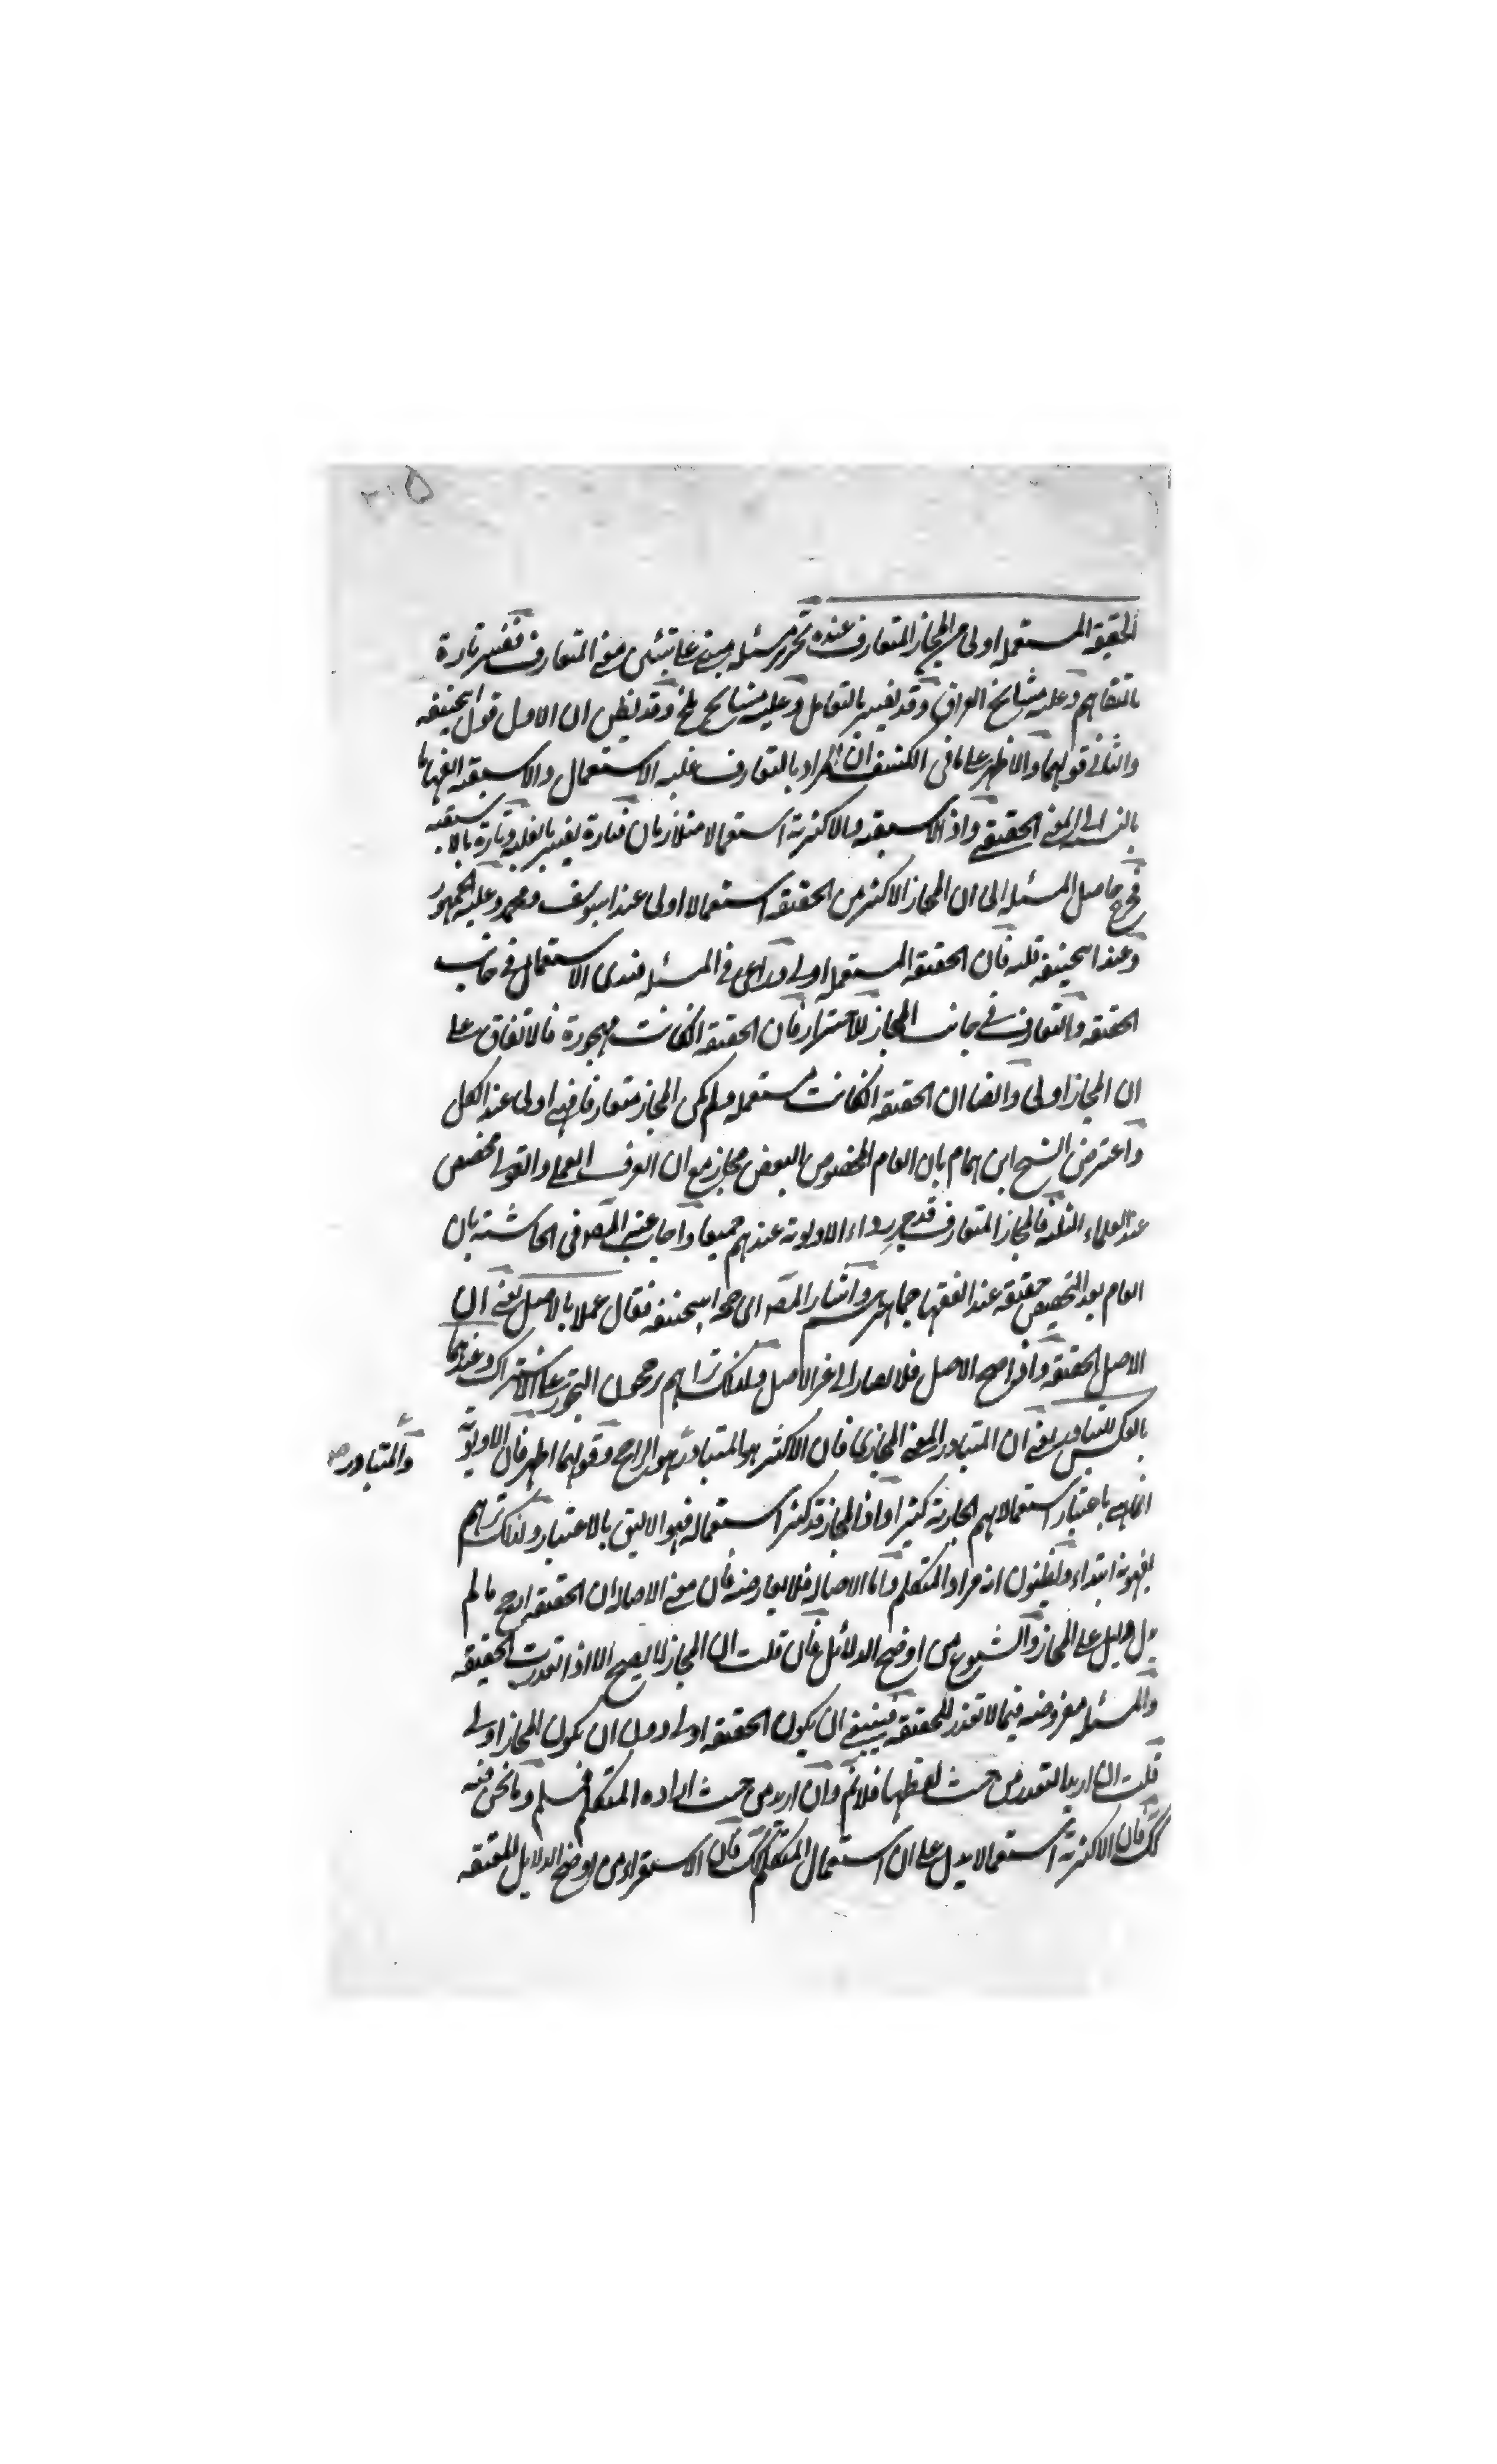 ٢١٥
الحقيقة المستعملة اولى من المجاز المتعارف عنده تحرير مسئلة مبني على تبيين معنى المتعارف تفسير تارة
بالتفاهم وعليه مشايخ العراق وقد يفسر بالتعامل وعليه مشايخ بلخ وقد يظن ان الاول قول ابيحنيفه
والثاني قولهما والاظهر على ما فى الكشف ان المراد بالتعارف غلبه الاستعمال والاسبقيه الفهم
بالنسبة الى المعنى الحقيقي واذ الاسبقيه والاكثرية استعمالا متلازمان فتارة يفسر بالغلبة وتارة بالاسبقيه
فرجع حاصل المسئلة الى ان المجاز الاكثر من الحقيقه استعمالا اولى عند ابيوسف ومحمد وعليه الجمهور
وعند ابيحنيفه قلبه فان الحقيقه المستعمله اولى وراعى فى المسئله قيدى الاستعمال فى جانب
الحقيقه والتعارف في جانب المجاز للاحتراز فان الحقيقه انكانت مهجورة فالاتفاق على
ان المجاز اولى وايضا ان الحقيقه انكانت مستعمله ولم يكن المجاز متعارفا فهى اولى عند الكل
واعترض الشيخ ابن همام بان العام المخصوص البعض مجاز مع ان العرف العملى والقولى مخصص
عند العلماء الثلثه فالمجاز المتعارف قد جرى رداء الاولوية عندهم جميعا واجاب عنه المصـ فى الحاشية بان
العام بعد التخصيص حقيقه عند الفقهاء جماهيرهم واشار المصـ الى حجة ابيحنيفه فقال عملا بالاصل يعنى ان
الاصل الحقيقه واذا صح الاصل فلا يصار الى غير الاصل ولذلك تراهم يرجحون التجوز على الاشتراك وعندهما
بالعكس للتبادر يعنى ان المتبادر المعنى المجازى فان الاكثر هو المتبادر هو الراجح وقولهما اظهر فان الاولوية
والمتبادر صح
انما هى باعتبار استعمالاتهم الجارية كثيرا واذا المجاز قد كثر استعماله فهو الاليق بالاعتبار ولذلك تراهم
يفهمونه ابتداء ويظنون انه مراد المتكلم واما الاصاله فلا يعارضه فان معنى الاصالة ان الحقيقة ارجح ما لم
يدل دليل على المجاز والشيوع من اوضح الدلائل فان قلت ان المجاز لا يصح الا اذا تعذرت الحقيقه
والمسئله مفروضه فيما لا تعذر للحقيقه فينبغى ان يكون الحقيقه اولى دون ان يكون المجاز اولى
قلت ان اريد التعذر من حيث لفظها فلا نم وان اريد من حيث اراده المتكلم فمسلم وما نحن فيه
كك فان الاكثرية استعمالا يدل على ان استعمال المتكلم كك فان الاستقراء من اوضح الدلايل الحقيقه